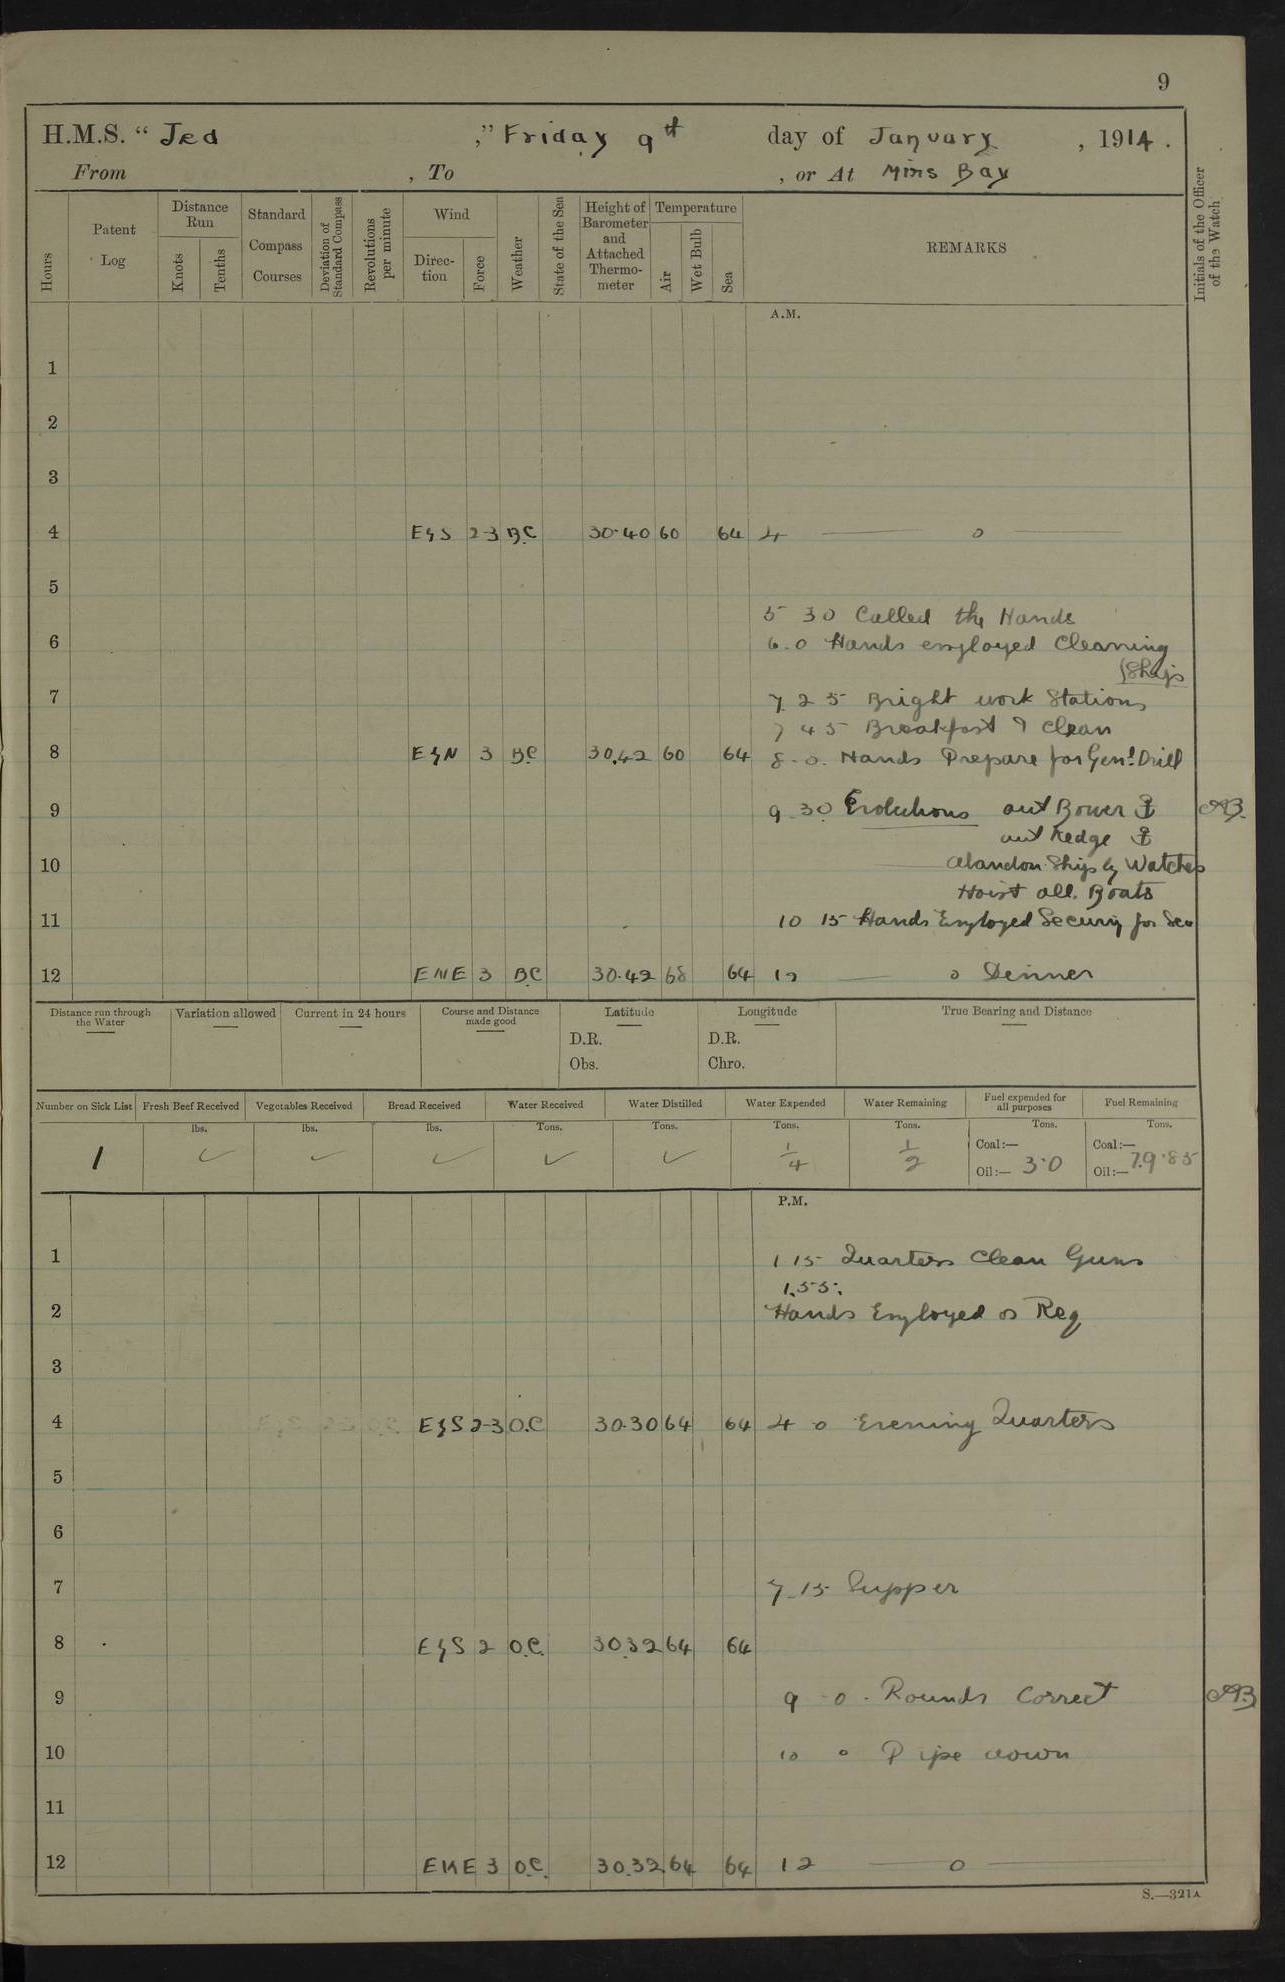 9
H.M.S. "Jed ," Friday 9th day of January , 1914.
From , To , or At Mirs Bay
Hours
Patent Log
Distance Run
Knots
Tenths
Standard Compass Courses
Deviation of Standard Compass
Revolutions per minute
Wind
Direction
Force
Weather
State of the Sea
Height of Barometer and Attached Thermometer
Temperature
Air
Wet Bulb
Sea
REMARKS
Initials of the Officer of the Watch
A.M.
1
2
3
4 E & S 2-3 B.C 30.40 60 64 4 — 0 —
5
5 30 Called the Hands
6 6.0 Hands employed Cleaning
Ship
7 7 25 Bright work Stations
7 45 Breakfast & Clean
8 E & N 3 B.C 30.42 60 64 8.0. Hands Prepare for Genl. Drill
9 9.30 Evolutions out Bower ⚓ AB.
out Kedge ⚓
10 Abandon Ship by Watches
Hoist all Boats
11 10 15 Hands Employed Securing for Sea
12 ENE 3 B.C 30.42 68 64 12 — 0 Dinner
Distance run through the Water
Variation allowed
Current in 24 hours
Course and Distance made good
Latitude
D.R.
Obs.
Longitude
D.R.
Chro.
True Bearing and Distance
Number on Sick List
Fresh Beef Received
Vegetables Received
Bread Received
Water Received
Water Distilled
Water Expended
Water Remaining
Fuel expended for all purposes
Fuel Remaining
lbs. lbs. lbs. Tons. Tons. Tons. Tons. Tons. Tons.
1 ✓ ✓ ✓ ✓ ✓ 1/4 1/2 Coal:— Coal:—
Oil:— 3.0 Oil:— 79.85
P.M.
1 1 15 Quarters Clean Guns
1.55.
2 Hands Employed as Req
3
4 E & S 2-3 O.C 30.30 64 64 4 0 Evening Quarters
5
6
7 7.15 Supper
8 E & S 2 O.C. 30.32 64 64
9 9 0. Rounds Correct AB
10 10 0 Pipe down
11
12 ENE 3 O.C. 30.32 64 64 12 — 0 —
S.—321A